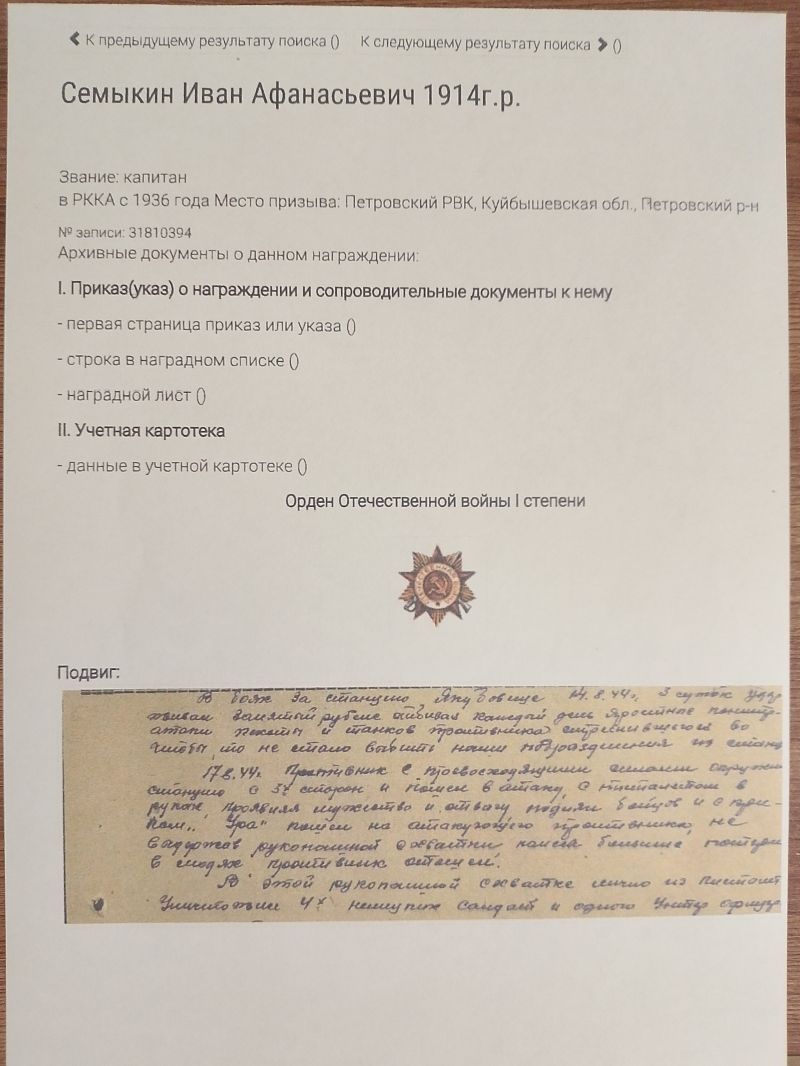 К предыдущему результату поиска () К следующему результату поиска ()
Семыкин Иван Афанасьевич 1914г.р.
Звание: капитан
в РККА с 1936 года Место призыва: Петровский РВК, Куйбышевская обл., Петровский р-н
№ записи: 31810394
Архивные документы о данном награждении:
I. Приказ(указ) о награждении и сопроводительные документы к нему
- первая страница приказ или указа ()
- строка в наградном списке ()
- наградной лист ()
II. Учетная картотека
- данные в учетной картотеке ()
Орден Отечественной войны I степени
Подвиг:
В боях за станцию 14.8.44г. 3 суток удер
живал занятый рубеж отбивая каждый день яростные контр-
атаки пехоты и танков противника стремившегося во
чтобы то не стало выбить наши подразделения из станц
17.8.44г. Противник с превосходящими силами окружи
станцию с 3х сторон и пошел в атаку, с пистолетом в
руках, проявляя мужество и отвагу поднял бойцов и с кри-
ком „Ура" пошел на атакующего противника, не
выдержав рукопашной схватки понеся большие потери
в людях противник отошел.
В этой рукопашной схватке лично из пистолет
Уничтожил 4х немецких солдат и одного Унтер офице